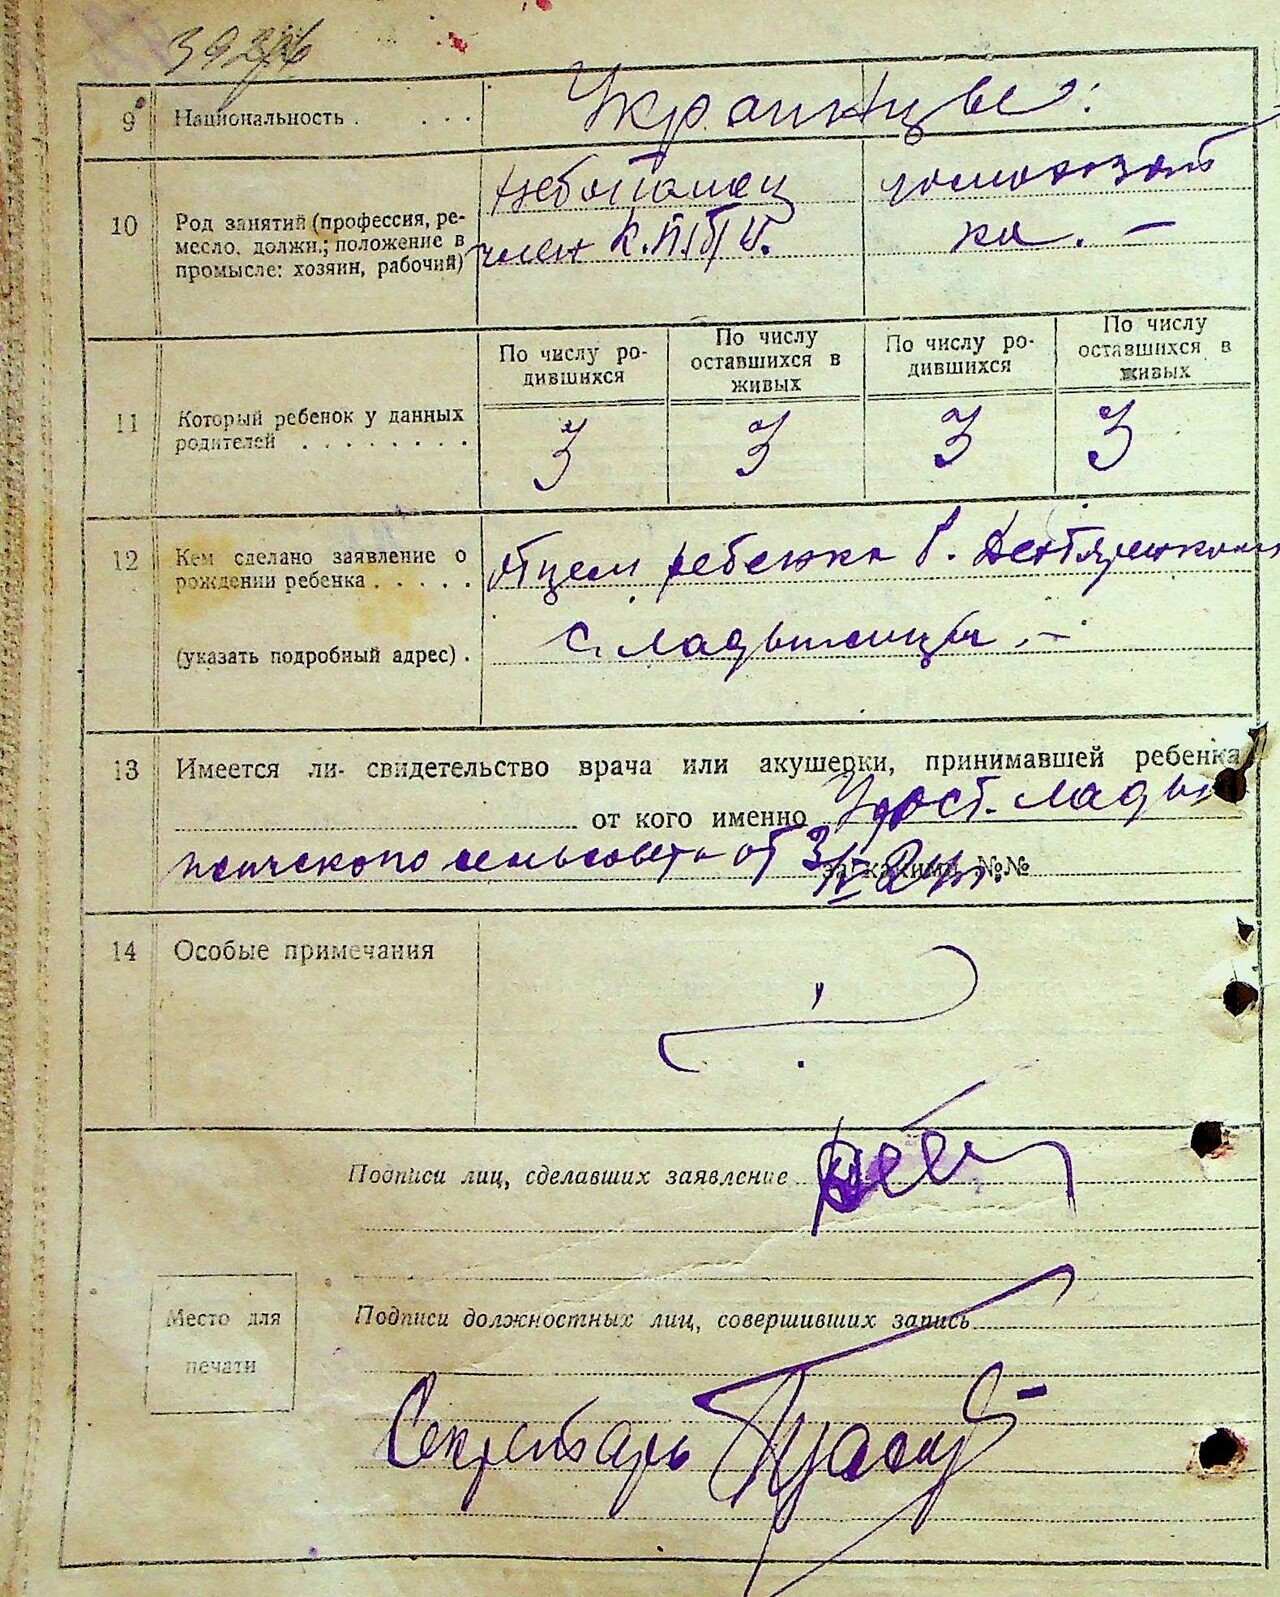 9 Национальность . . . . Украинцы.
10 Род занятий (профессия, ре-
месло, должн.; положение в
промысле: хозяин, рабочий)
член К.П.б/У. ка. —
По числу ро-
дившихся
По числу
оставшихся в
живых
По числу ро-
дившихся
По числу
оставшихся в
живых
11 Который ребенок у данных
родителей . . . . . . . .
3 3 3 3
12 Кем сделано заявление о
рождении ребенка . . . . .
Отцем ребенка
(указать подробный адрес) .
с. Ладыжицы. —
13 Имеется ли свидетельство врача или акушерки, принимавшей ребенка
от кого именно Удост. Лады
жичского сельсовета от 3/IV за какими №№
14 Особые примечания
Подписи лиц, сделавших заявление
Место для
печати
Подписи должностных лиц, совершивших запись
Секретарь